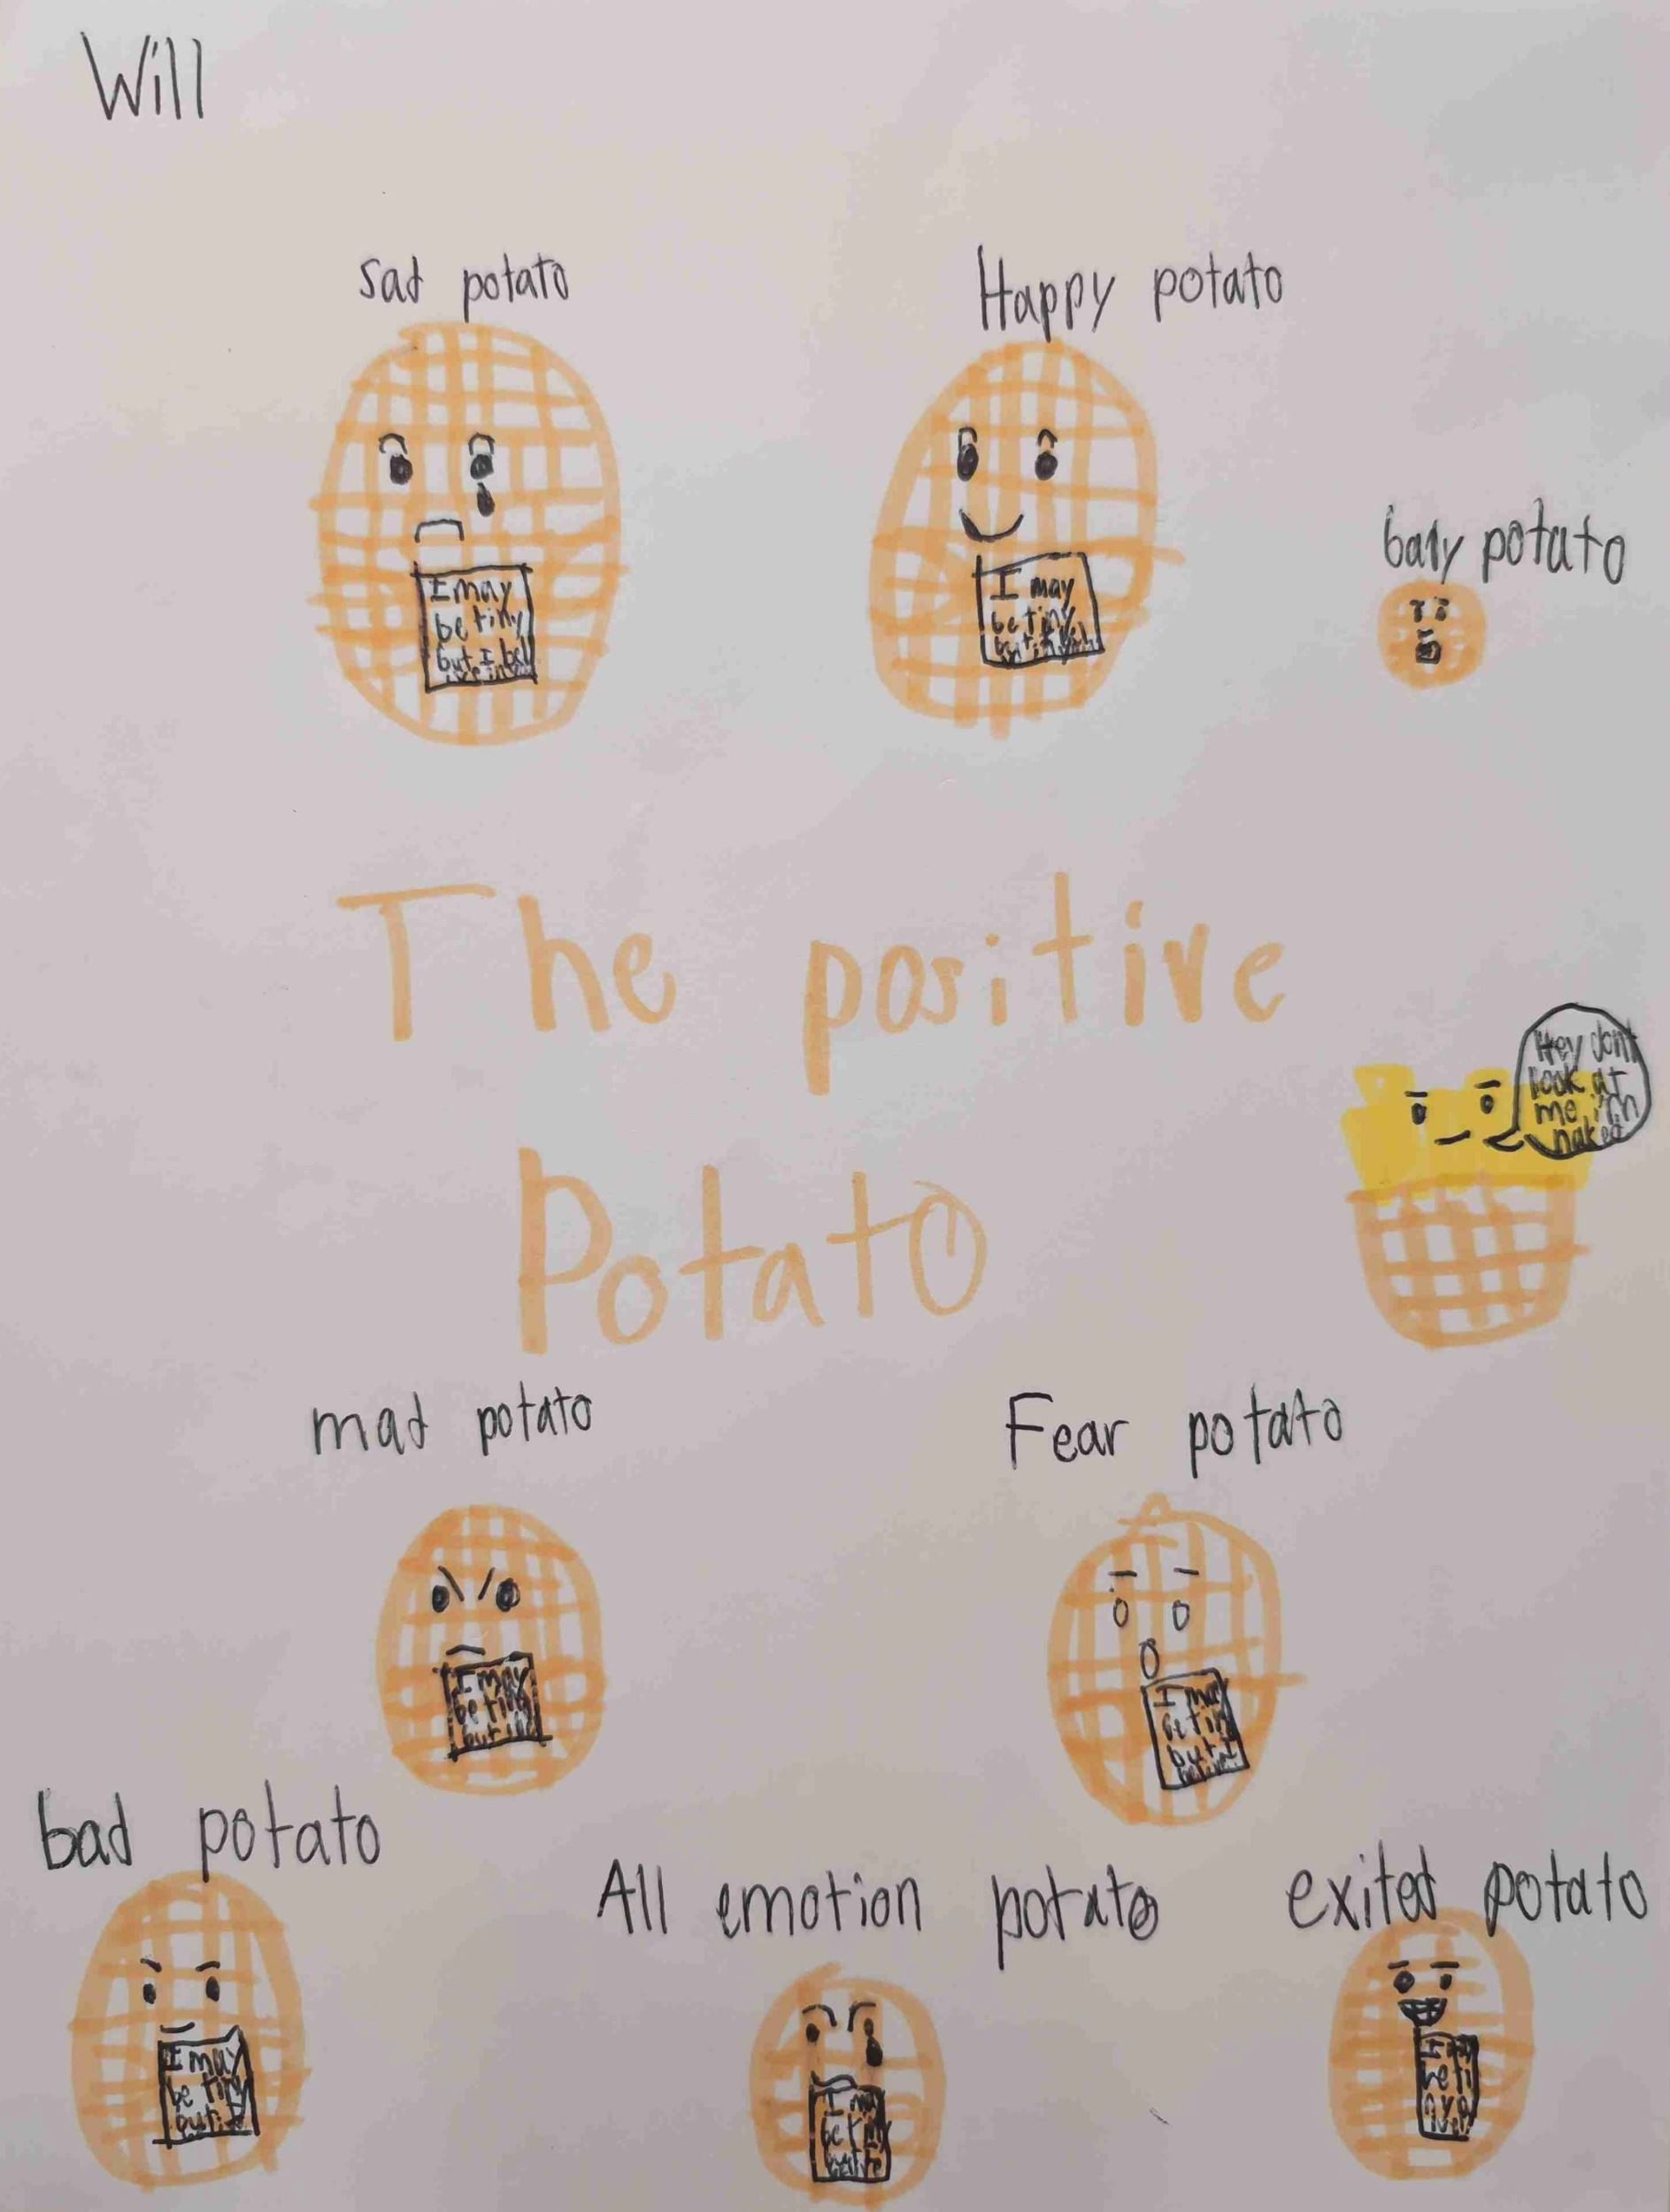 Will
sad potato
Happy potato
baby potato
I may
be tiny
but I
I may
be tiny
but
The positive
Hey don't
look at
me i'm
naked
Potato
mad potato
Fear potato
I may
be tiny
but
I may
be tiny
but I
bad potato
All emotion potato
exited potato
I may
be tiny
but
I may
be tiny
but
I may